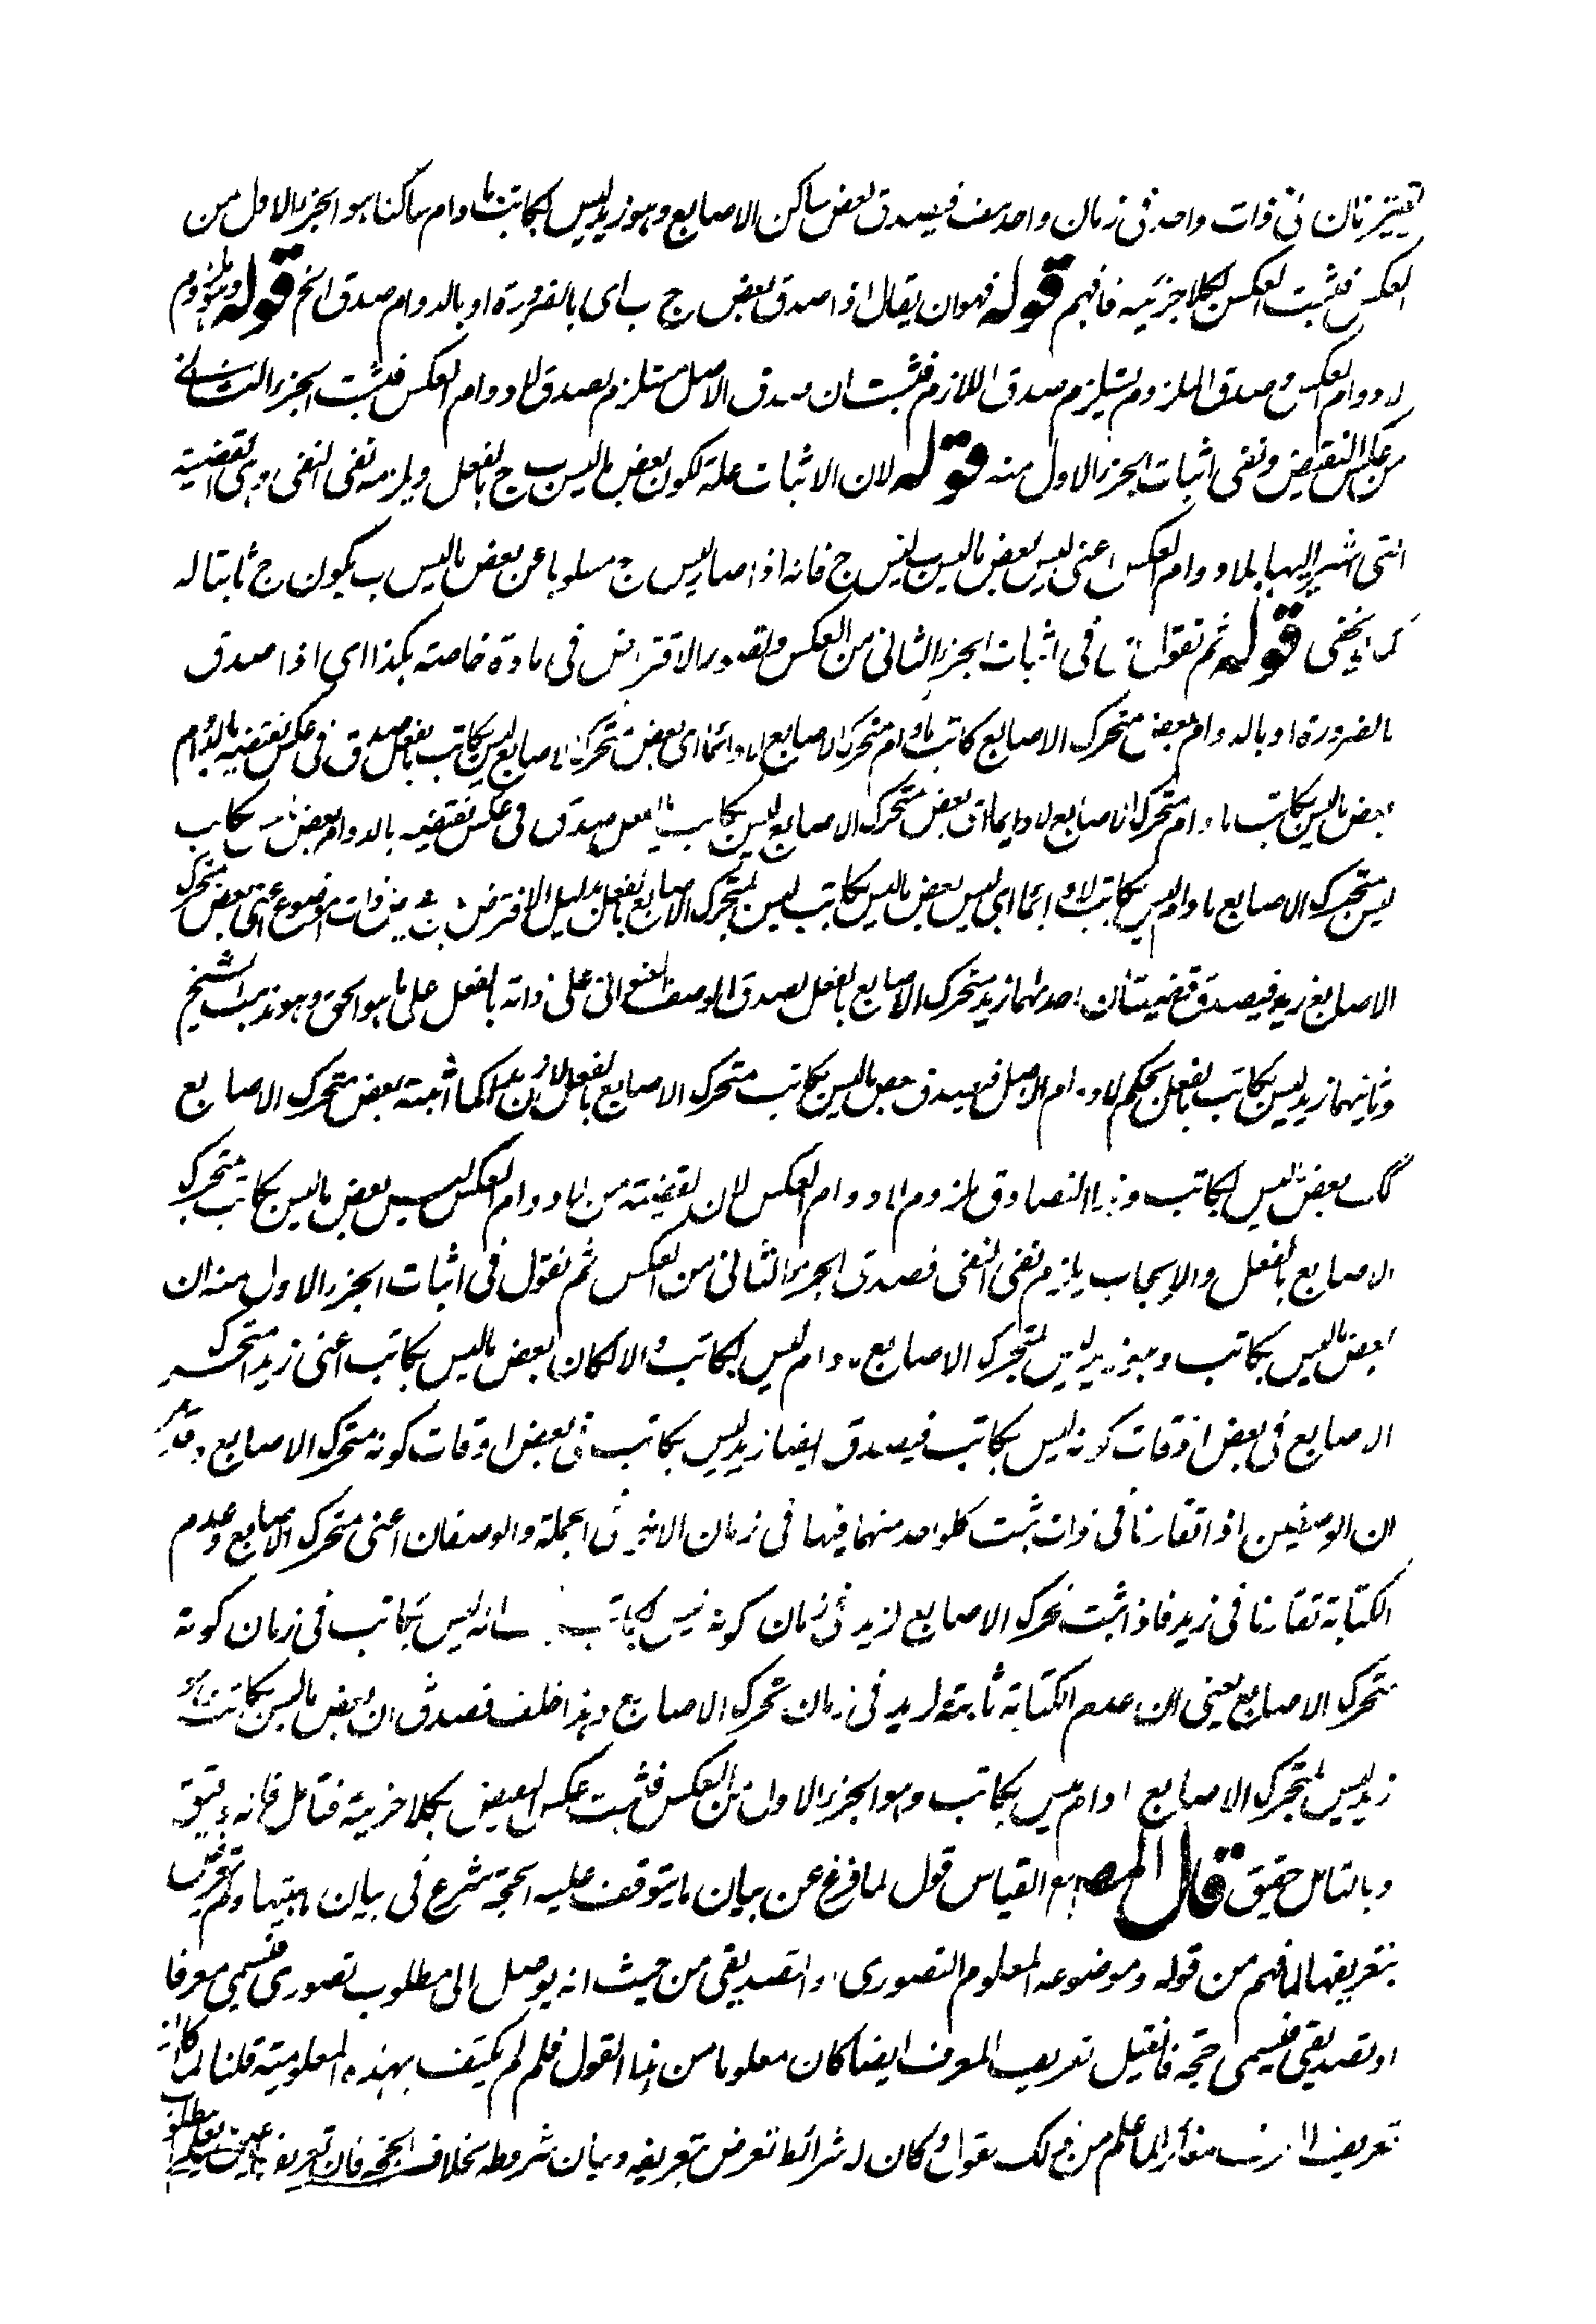 تقترنان فى ذات واحد فى زمان واحد هف فيصدق بعض ساكن الاصابع وهو زيد ليس بكاتب ما دام ساكنا هو الجزء الاول من
العكس فثبت العكس بكلا جزئيه فافهم قوله فهو ان يقال اذا صدق بعض ج ب اى بالضرورة او بالدوام صدق الخ قوله وهو ملزوم
لادوام العكس وصدق الملزوم يستلزم صدق اللازم فثبت ان صدق الاصل مستلزم لصدق لادوام العكس فثبت الجزء الثانى
من عكس النقيض ونفى اثبات الجزء الاول منه قوله لان الاثبات علة لكون بعض ما ليس ب ج بالفعل ويلزمه نفى النفى وهى القضية
التى اشير اليها بلادوام العكس اعنى ليس بعض ما ليس ب ليس ج فانه اذا صار ليس ج مسلوبا عن بعض ما ليس ب يكون ج ثابتا له
كما لا يخفى قوله ثم نقول فى اثبات الجزء الثانى من العكس ولتصور الافتراض فى مادة خاصة هكذا اى اذا صدق
بالضرورة او بالدوام بعض متحرك الاصابع كاتب ما دام متحرك الاصابع لا دائما اى بعض متحرك الاصابع ليس بكاتب بالفعل صدق فى عكس نقيضه بالدوام
بعض ما ليس بكاتب ما دام متحرك الاصابع لا دايما اى بعض متحرك الاصابع ليس بكاتب بالفعل صدق فى عكس نقيضه بالدوام بعض ما ليس بكاتب
ليس متحرك الاصابع ما دام ليس بكاتب لا دائما اى ليس بعض ما ليس بكاتب ليس بمتحرك الاصابع بالفعل بدليل الافتراض ذات الموضوع اعنى بعض متحرك
الاصابع زيد فيصدق قضيتان احدهما زيد متحرك الاصابع بالفعل لصدق الوصف العنوانى على ذاته بالفعل على ما هو الحق وهو مذهب الشيخ
وثانيهما زيد ليس بكاتب بالفعل بحكم لادوام الاصل فيصدق بعض ما ليس بكاتب متحرك الاصابع بالفعل لان زيدا كما اثبته بعض متحرك الاصابع
كذلك بعض ليس بكاتب وهذا التصادق ملزوم لادوام العكس لان القضية من لادوام العكس ليس بعض ما ليس بكاتب متحرك
الاصابع بالفعل والايجاب يلزم نفى النفى فصدق الجزء الثانى من العكس ثم نقول فى اثبات الجزء الاول منه ان
بعض ما ليس بكاتب وهو زيد ليس بمتحرك الاصابع ما دام ليس بكاتب والا لكان بعض ما ليس بكاتب اعنى زيدا متحرك
الاصابع فى بعض اوقات كونه ليس بكاتب فيصدق ايضا زيد ليس بكاتب فى بعض اوقات كونه متحرك الاصابع وقد مر
ان الوصفين اذا تقارنا فى ذات ثبت كلواحد منهما فيها فى زمان الاخر فى الجملة والوصفان اعنى متحرك الاصابع وعدم
الكتابة تقارنا فى زيد فاذا ثبت تحرك الاصابع لزيد فى زمان كونه ليس بكاتب انه ليس بكاتب فى زمان كونه
متحرك الاصابع يعنى ان عدم الكتابة ثابتة لزيد فى زمان تحرك الاصابع وهذا خلف فصدق ان بعض ما ليس بكاتب وهو
زيد ليس بمتحرك الاصابع ما دام ليس بكاتب وهو الجزء الاول من العكس فثبت عكس البعض بكلا جزئيه فتامل فانه دقيق
وبالتامل حقيق قال المصـ القياس قول لما فرغ عن بيان ما يتوقف عليه الحجة شرع فى بيان ماهيتها ولم يتعرض
بتعريفها لما فهم من قوله وموضوعه المعلوم التصورى او التصديقى من حيث انه يوصل الى مطلوب تصورى فيسمى معرفا
او تصديقى فيسمى حجة فان قيل تعريف المعرف ايضا كان معلوما من هذا القول فلم لم يكتف بهذه المعلومية قلنا لما كان
تعريف المعرف مغائرا لما علم من ذلك القول وكان له شرائط تعرض بتعريفه وبيان شروطه بخلاف الحجة فان تعريفه